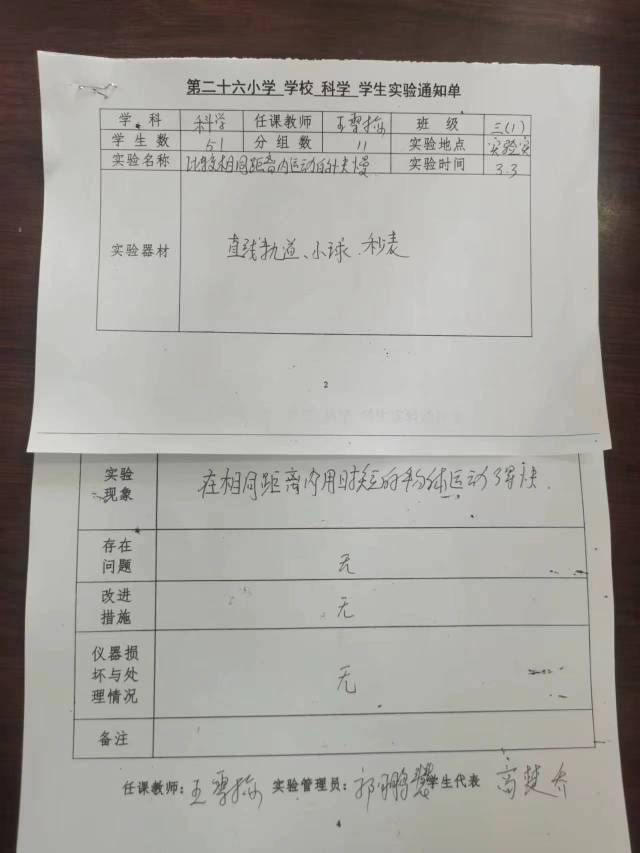 第二十六小学 学校 科学 学生实验通知单
学 科 科学 任课教师 王雪梅 班 级 三(1)
学生数 51 分组数 11 实验地点 实验室
实验名称 比较相同距离内运动的快慢 实验时间 3.3
实验器材 直线轨道、小球、秒表
2
实验
现象 在相同距离内用时短的物体运动得快.
存在
问题 无
改进
措施 无
仪器损
坏与处
理情况 无
备注
任课教师:王雪梅 实验管理员:郭鹏慧 学生代表 高楚乔
4